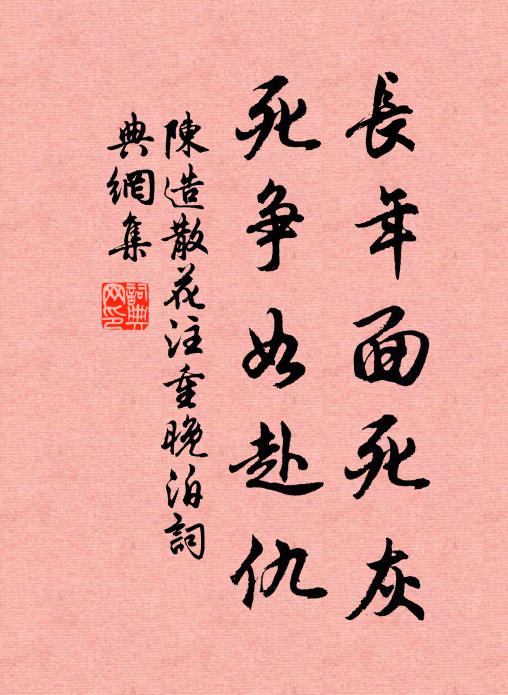 長年面死灰
死争如赴仇
陳造散花注重晚泊詞
典網集
詞典网印